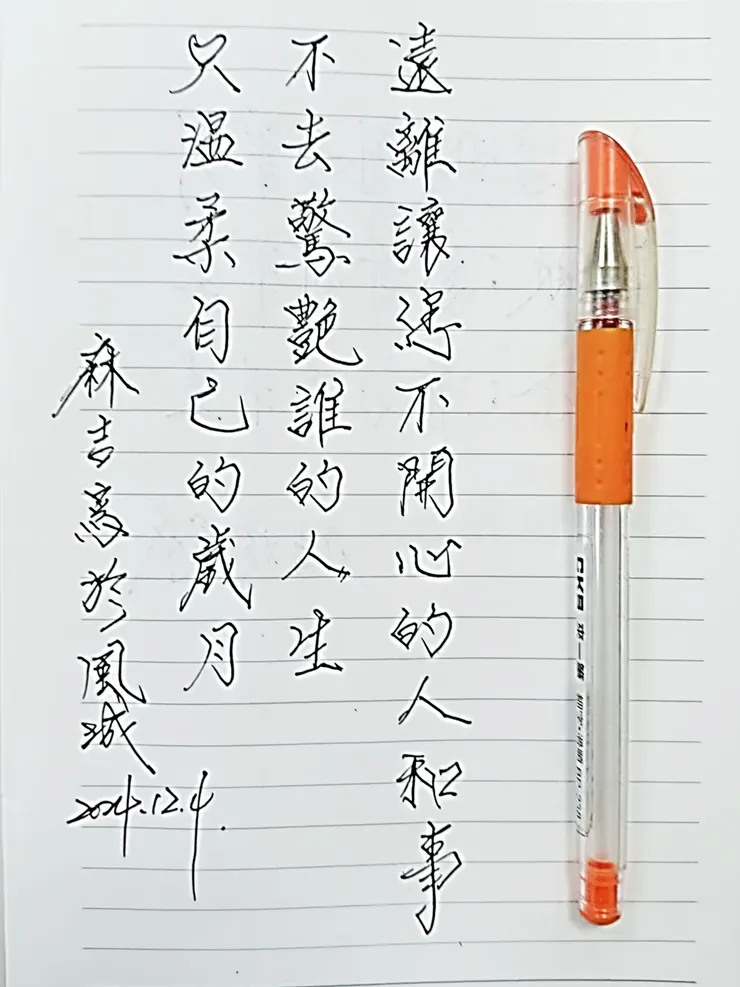 遠離讓不開心的人和事
不去驚艷誰的人生
只温柔自己的歲月
麻吉寫於風城
2024.12.4.